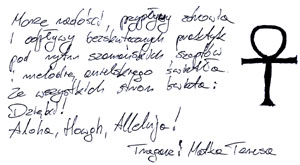 Morze radości, przypływy zdrowia
i odpływy bezskutecznych praktyk
pod rytm szamańskich szeptów
i melodię anielskiego światła
Ze wszystkich stron świata:
Dzięki!
Aloha, Howgh, Alleluja!
Tragarz i Matka Teresa